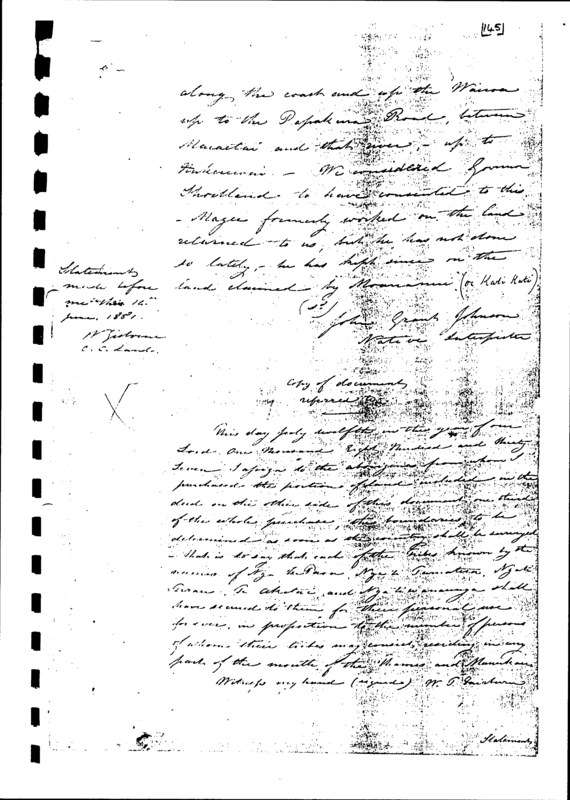 145
along the coast and up the Wairoa
up to the Papakura Road, between
Maraetai and that river, - up to
- We considered Governor
Shortland to have consented to this
- Magee formerly worked on the land
returned to us, but he has not done
so lately, - he has kept since on the
land claimed by (or Kati Kati)
John Grant Johnson
Native Interpreter
Statements
made before
me this
June, 1851.
C. C. Lands.
Copy of document
referred to
This day July twelfth in the year of our
Lord One Thousand Eight Hundred and Thirty
Seven I to the aborigines from whom I
purchased the portion of land included in the
deed on the other side of this document one third
of the whole purchase, the boundaries to be
determined as soon as the country shall be surveyed
- that is to say that each of the Tribes known by the
names of Paoa Ngati Tamatera, Ngati
Te Akitai, and shall
have secured to them for their personal use
for ever, in proportion to the number of persons
of whom their tribes may consist, residing in any
part of the mouth of the Thames and
Witness my hand (signed) W. T. Fairburn
Statement